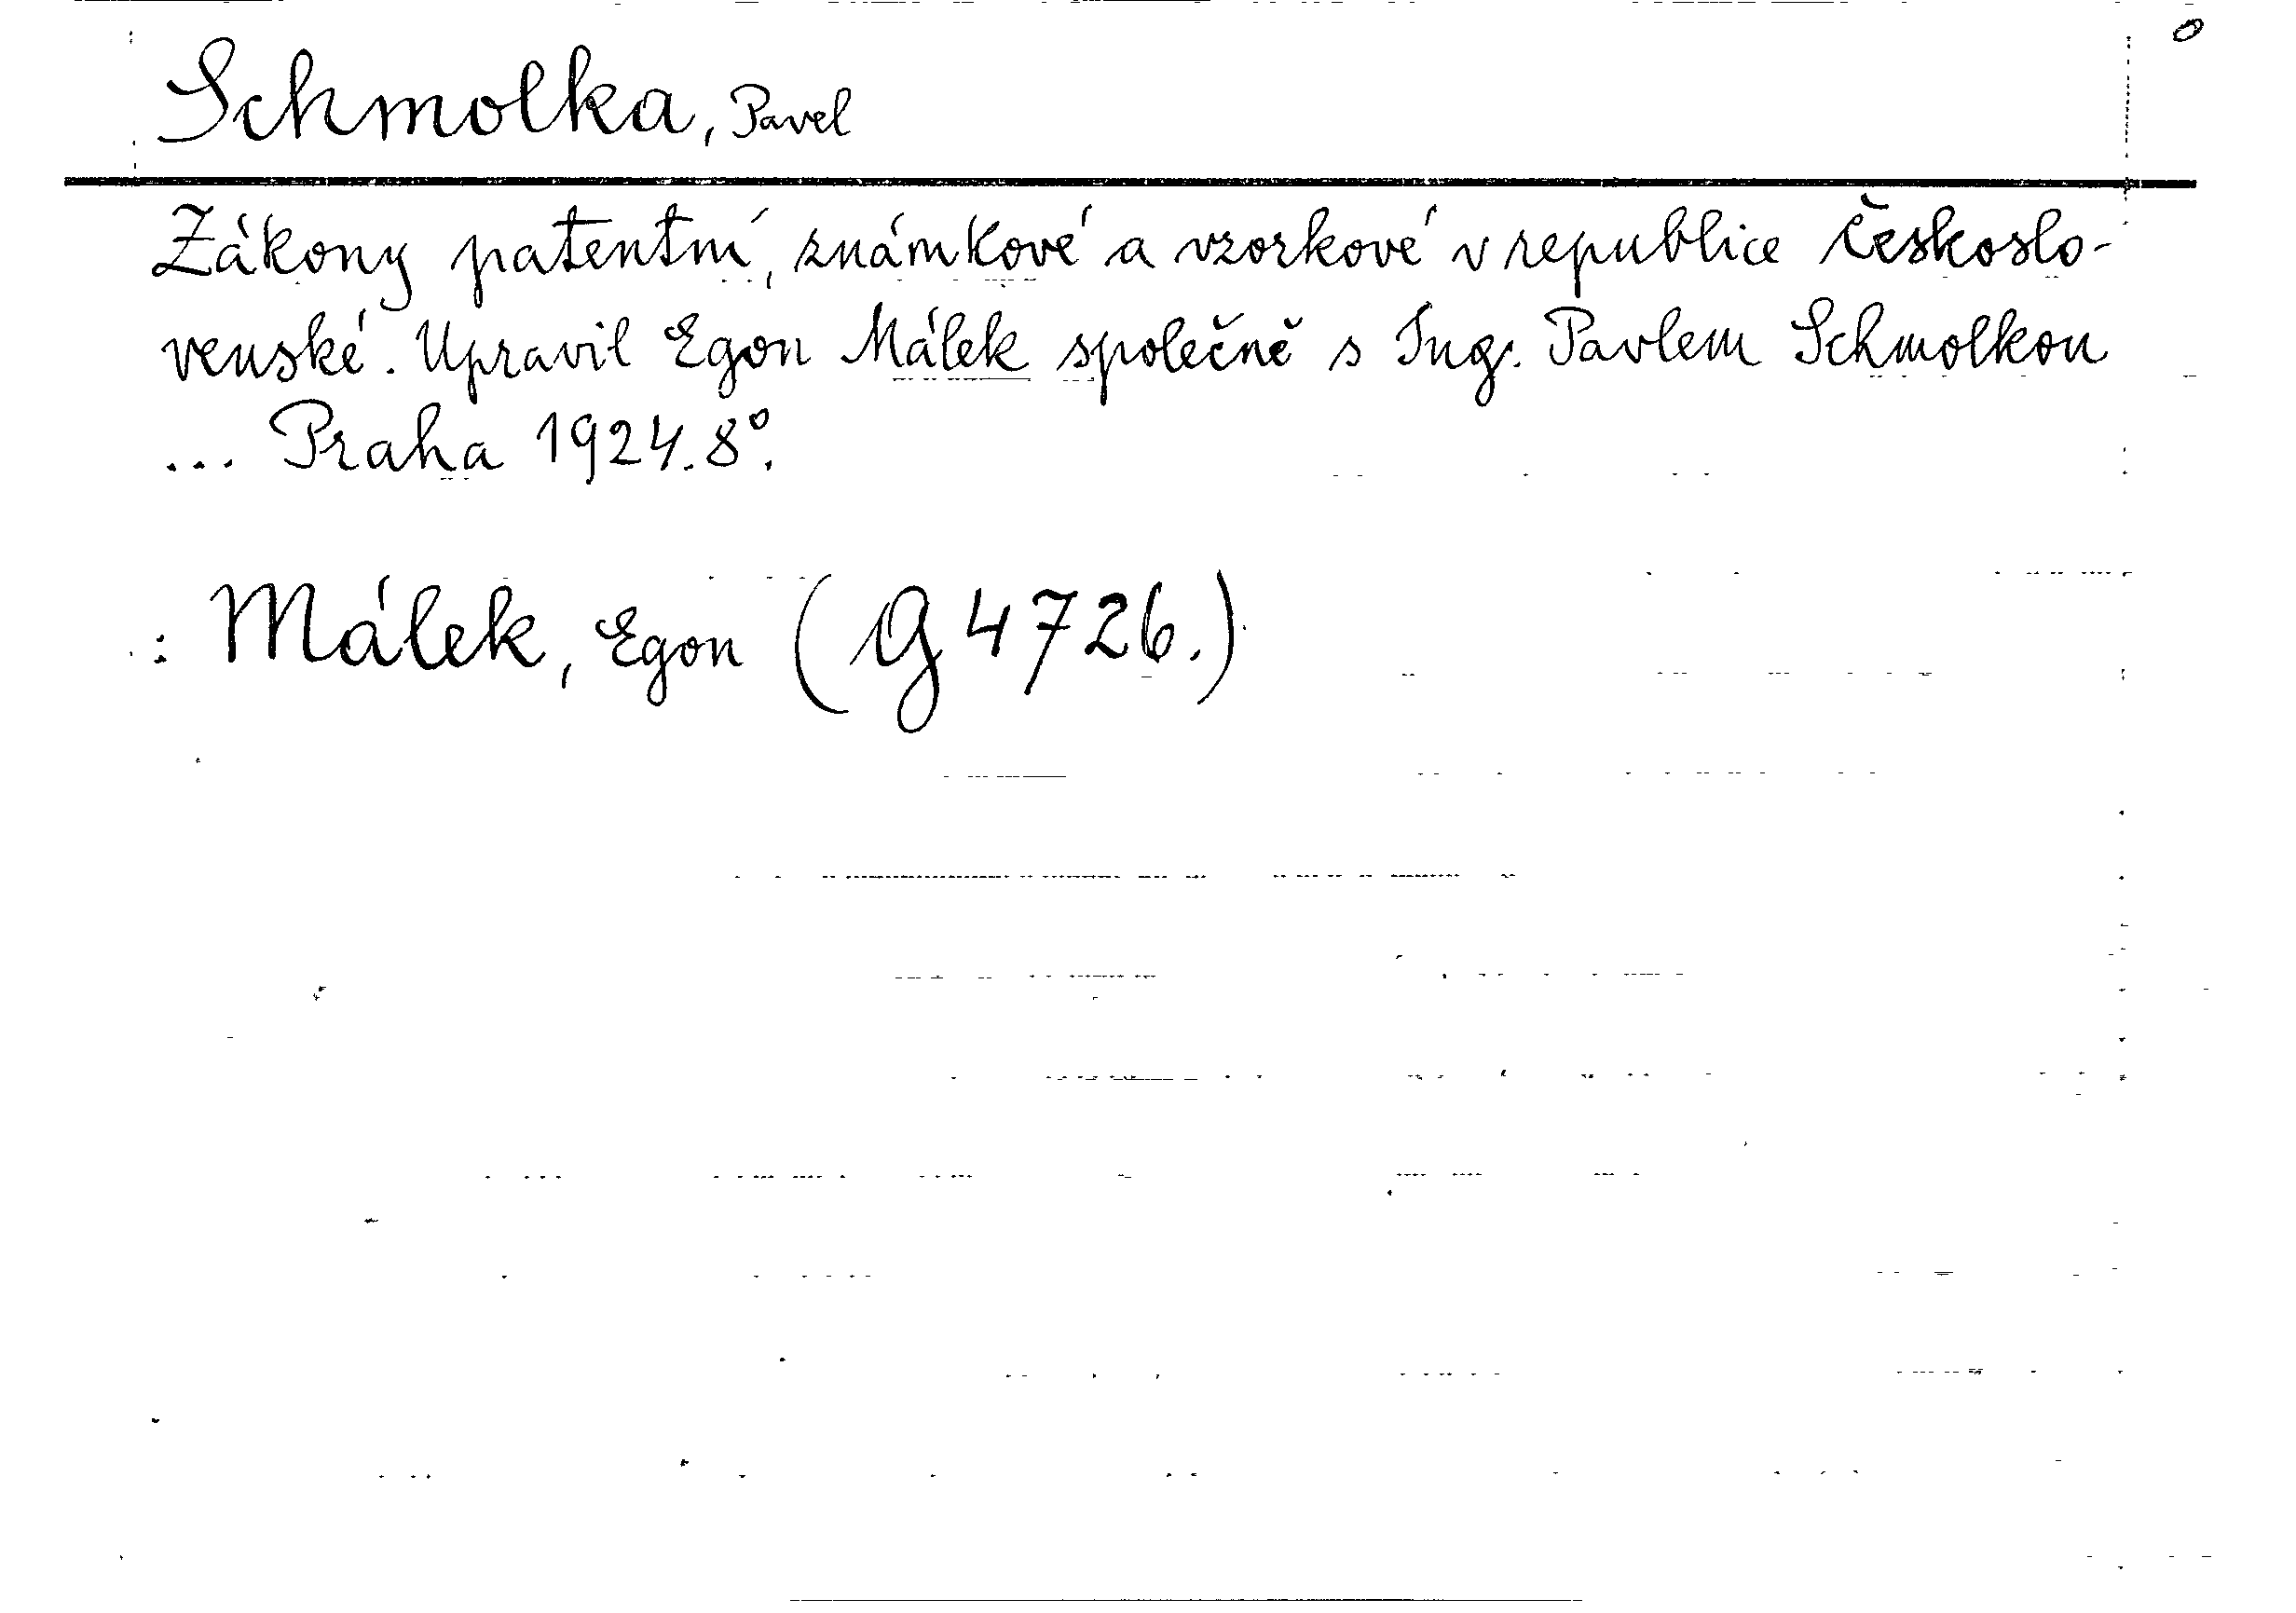 Schmolka, Pavel
Zákony patentní, známkové a vzorkové v republice českoslo-
venské. Upravil Egon Málek společně s Ing. Pavlem Schmolkou
... Praha 1924. 8°.
: Málek, Egon (G 4726.)